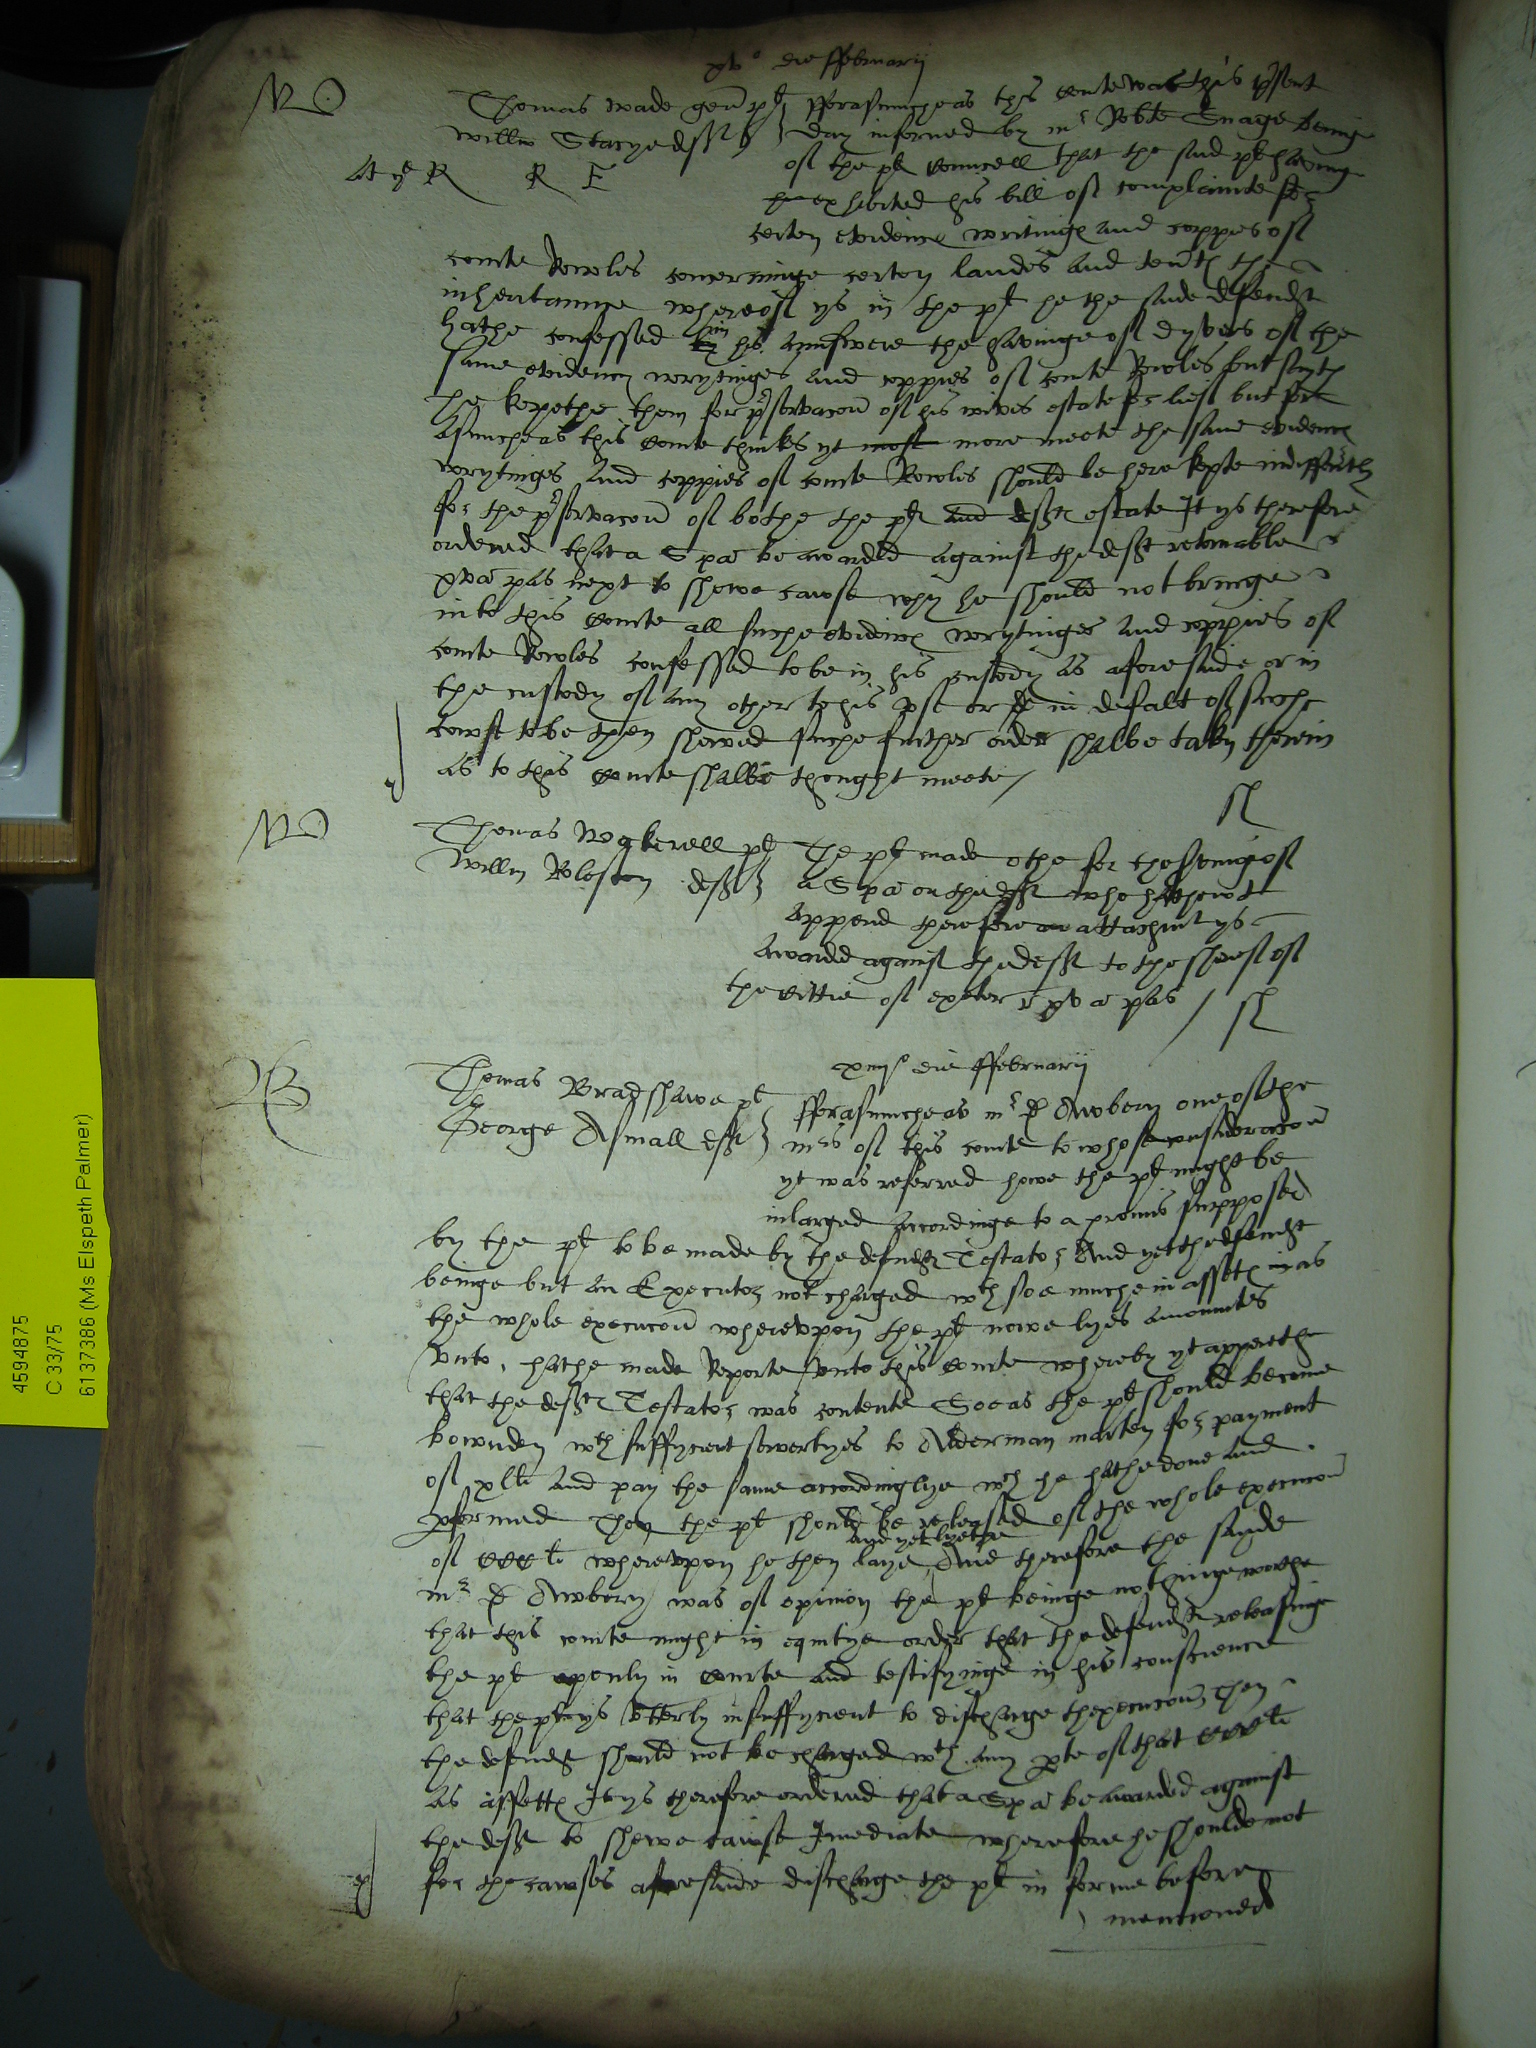 xv° die ffebruarij
Thomas Wade gen plt
Willm Stacye deft
fforasmucheas this Courte was this present
day informed by mr Robte Snage beinge
of the plt councell that the said plt havinge
exhibited his bill of complainte for
certen evidence writinge and coppies of
courte Rowles concerninge certen landes and tent the
inheritaunce whereof ys in the plt he the saide defendt
hathe confessed in his aunswere the havinge of dyvers of the
same evidence wrytinges and coppies of courte Rowles but sayth
he kepethe them for preservacon of his wives estate for lief but for
asmucheas this Courte thinks yt most more meete the same evidence
wrytinges and coppies of courte Rowles should be here kepte indifferently
for the preservacon of bothe the plt and deft estate It ys therefore
ordered that a Spa be awarded against the deft retornable
xva pas next to shewe cawse why he should not bringe
into this Courte all suche evidence wrytinges and coppies of
courte Rowles confessed to be in his custody as aforesaide or in
the custody of any other to his use or in defalt of suche
cawse to be then shewed suche further order shalbe taken therein
as to this Courte shalbe thought meete /
Thomas plt
Willm deft
The plt made othe for the servinge of
a Spa on the deft who hathe not
appered therefore an attachmt ys
awarded against the deft to the sheref of
the Cittie of exeter r xva pas /
xiiij° die ffebruarij
Thomas Bradshawe plt
George Asmall deft
fforasmucheas mr D Awbery one of the
mrs of this courte to whose consideracon
yt was referred howe the plt might be
inlarged accordinge to a promis supposed
by the plt to be made by the defendt Testator And yet the defendt
beinge but an Executor not charged wth soe muche in assetts as
the whole execucon whereupon the plt nowe lyes amountes
unto, hathe made Reporte unto this courte whereby yt apperethe
that the deft Testator was contente Soe as the plt should become
bownden wth suffycient sewertyes to Alderman marten for payment
of xlli and pay the same accordinglye wch he hathe done and
performed Then the plt should be released of the whole execucon
and yet lyethe
of CCCli whereupon he then laye And therefore the sayde
mr D Awbery was of opinion the plt beinge nothinge worthe
that this courte might in equitye order that the defendt releasinge
the plt openly in Courte and testifyinge in his conscience
that the plt ys utterly insuffycient to discharge thexecucon, Then
the defendt should not be charged wth any parte of that CCCli
as assetts It ys therefore ordered that a Spa be awarded against
the deft to shewe cawse Imediate wherefore he shoulde not
for the cawses aforesaide discharge the plt in forme before
mencioned
4594875
C 33/75
6137386 (Ms Elspeth Palmer)